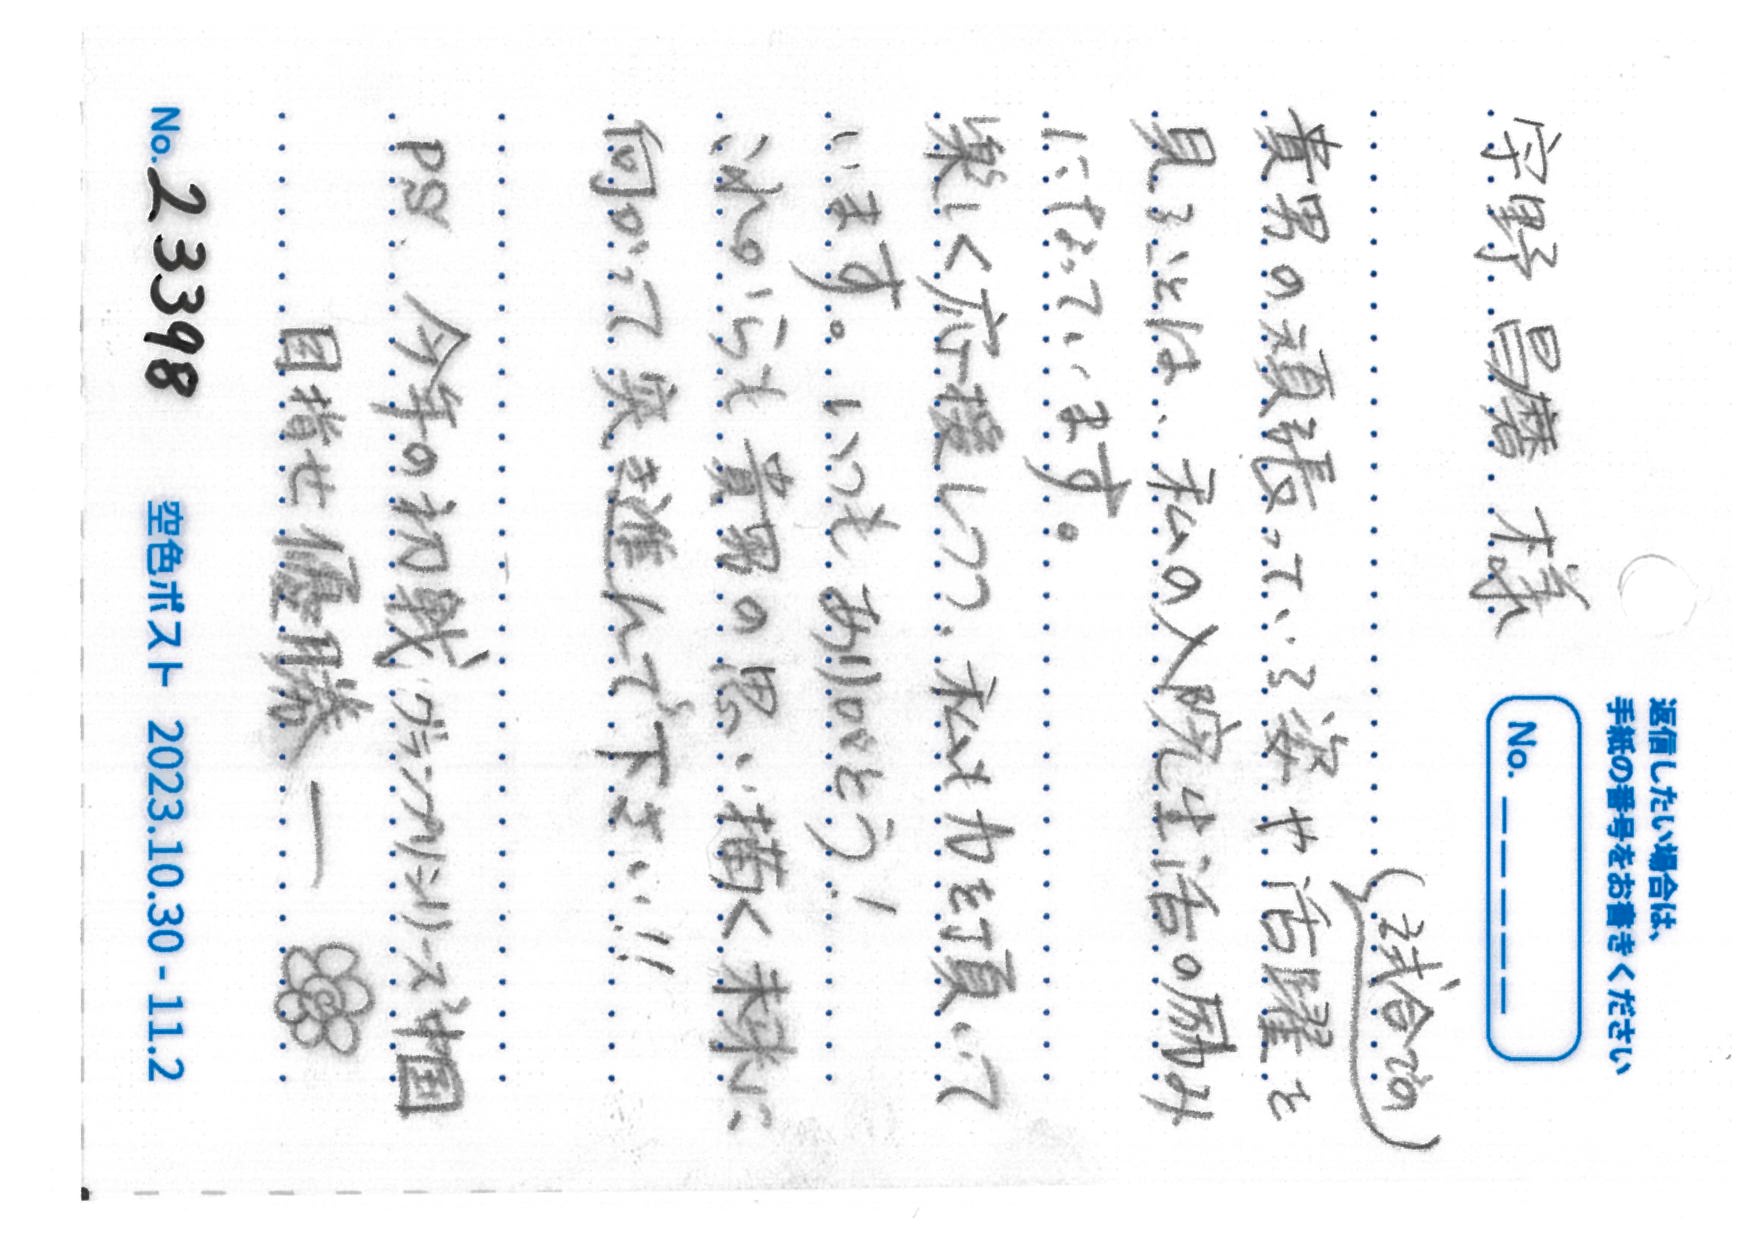 返信したい場合は、
手紙の番号をお書きください
No. _ _ _ _ _
宇野昌磨 様
(試合での)
貴男の頑張っている姿や活躍を
見ることは、私の入院生活の励み
になっています。
楽しく応援しつつ、私も力を頂いて
います。いつもありがとう!
これからも貴男の思い描く未来に
向かって突き進んで下さい!!
PS、今年の初戦 グランプリシリーズ中国
目指せ優勝ー
No. 23398 空色ポスト 2023.10.30 - 11.2